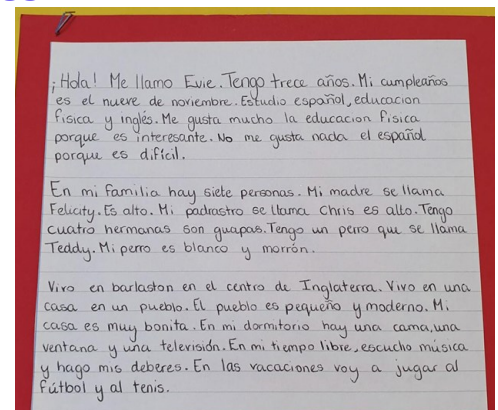 ¡Hola! Me llamo Evie. Tengo trece años. Mi cumpleaños
es el nueve de noviembre. Estudio español, educacion
fisica y inglés. Me gusta mucho la educacion fisica
porque es interesante. No me gusta nada el español
porque es difícil.
En mi familia hay siete personas. Mi madre se llama
Felicity. Es alto. Mi padrastro se llama Chris es alto. Tengo
cuatro hermanas son guapas. Tengo un perro que se llama
Teddy. Mi perro es blanco y morrón.
Vivo en barlaston en el centro de Inglaterra. Vivo en una
casa en un pueblo. El pueblo es pequeño y moderno. Mi
casa es muy bonita. En mi dormitorio hay una cama, una
ventana y una televisión. En mi tiempo libre, escucho música
y hago mis deberes. En las vacaciones voy a jugar al
fútbol y al tenis.